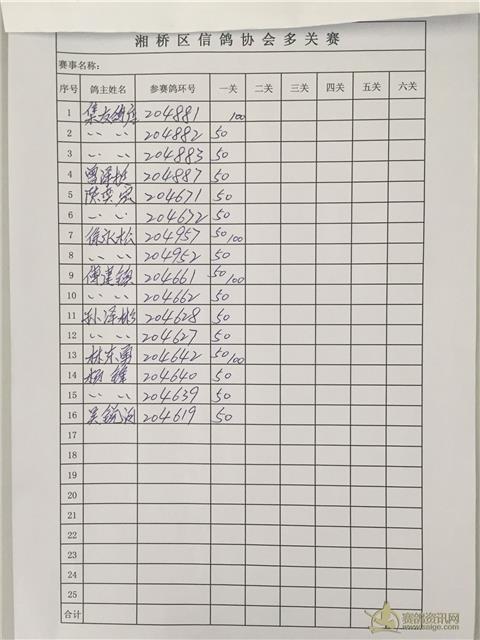 湘桥区信鸽协会多关赛
赛事名称:
序号 鸽主姓名 参赛鸽环号 一关 二关 三关 四关 五关 六关
1 集友鸽店 204881 100
2 〃 〃 204882 50
3 〃 〃 204883 50
4 曾泽彬 204887 50
5 陈奕宏 204671 50
6 〃 〃 204672 50
7 徐永松 204957 50/100
8 〃 〃 204952 50
9 204661 50/100
10 〃 〃 204662 50
11 孙泽彬 204628 50
12 〃 〃 204627 50
13 林东勇 204642 50/100
14 杨锋 204640 50
15 〃 〃 204639 50
16 吴 204619 50
17
18
19
20
21
22
23
24
25
合计
赛鸽资讯网
www.saige.com